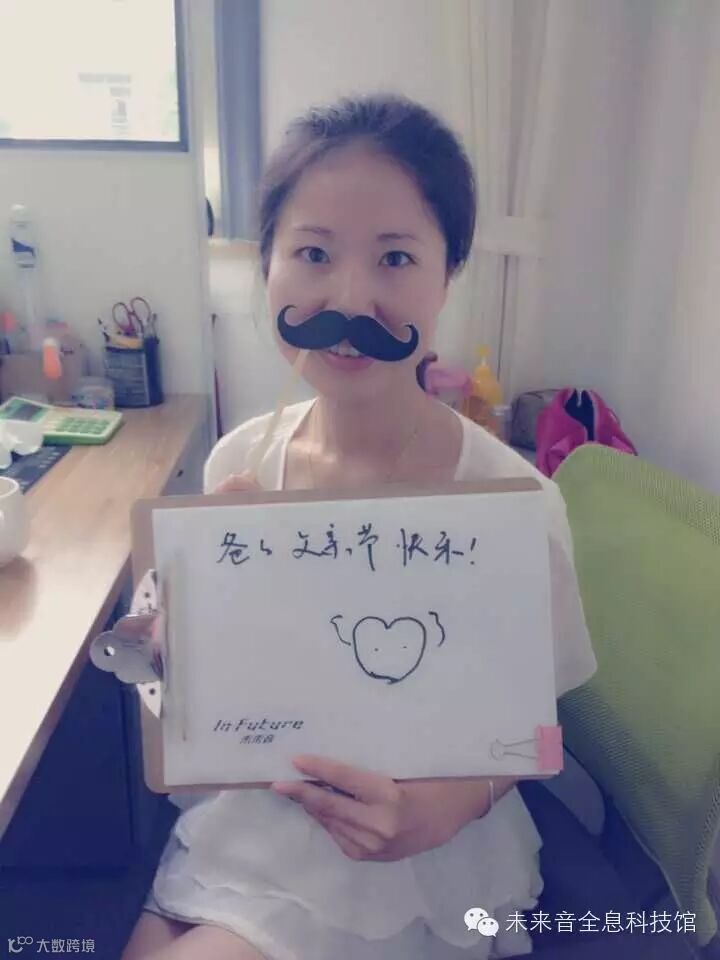 爸爸 父亲节 快乐!
In Future
未来音
未来音全息科技馆
大数跨境